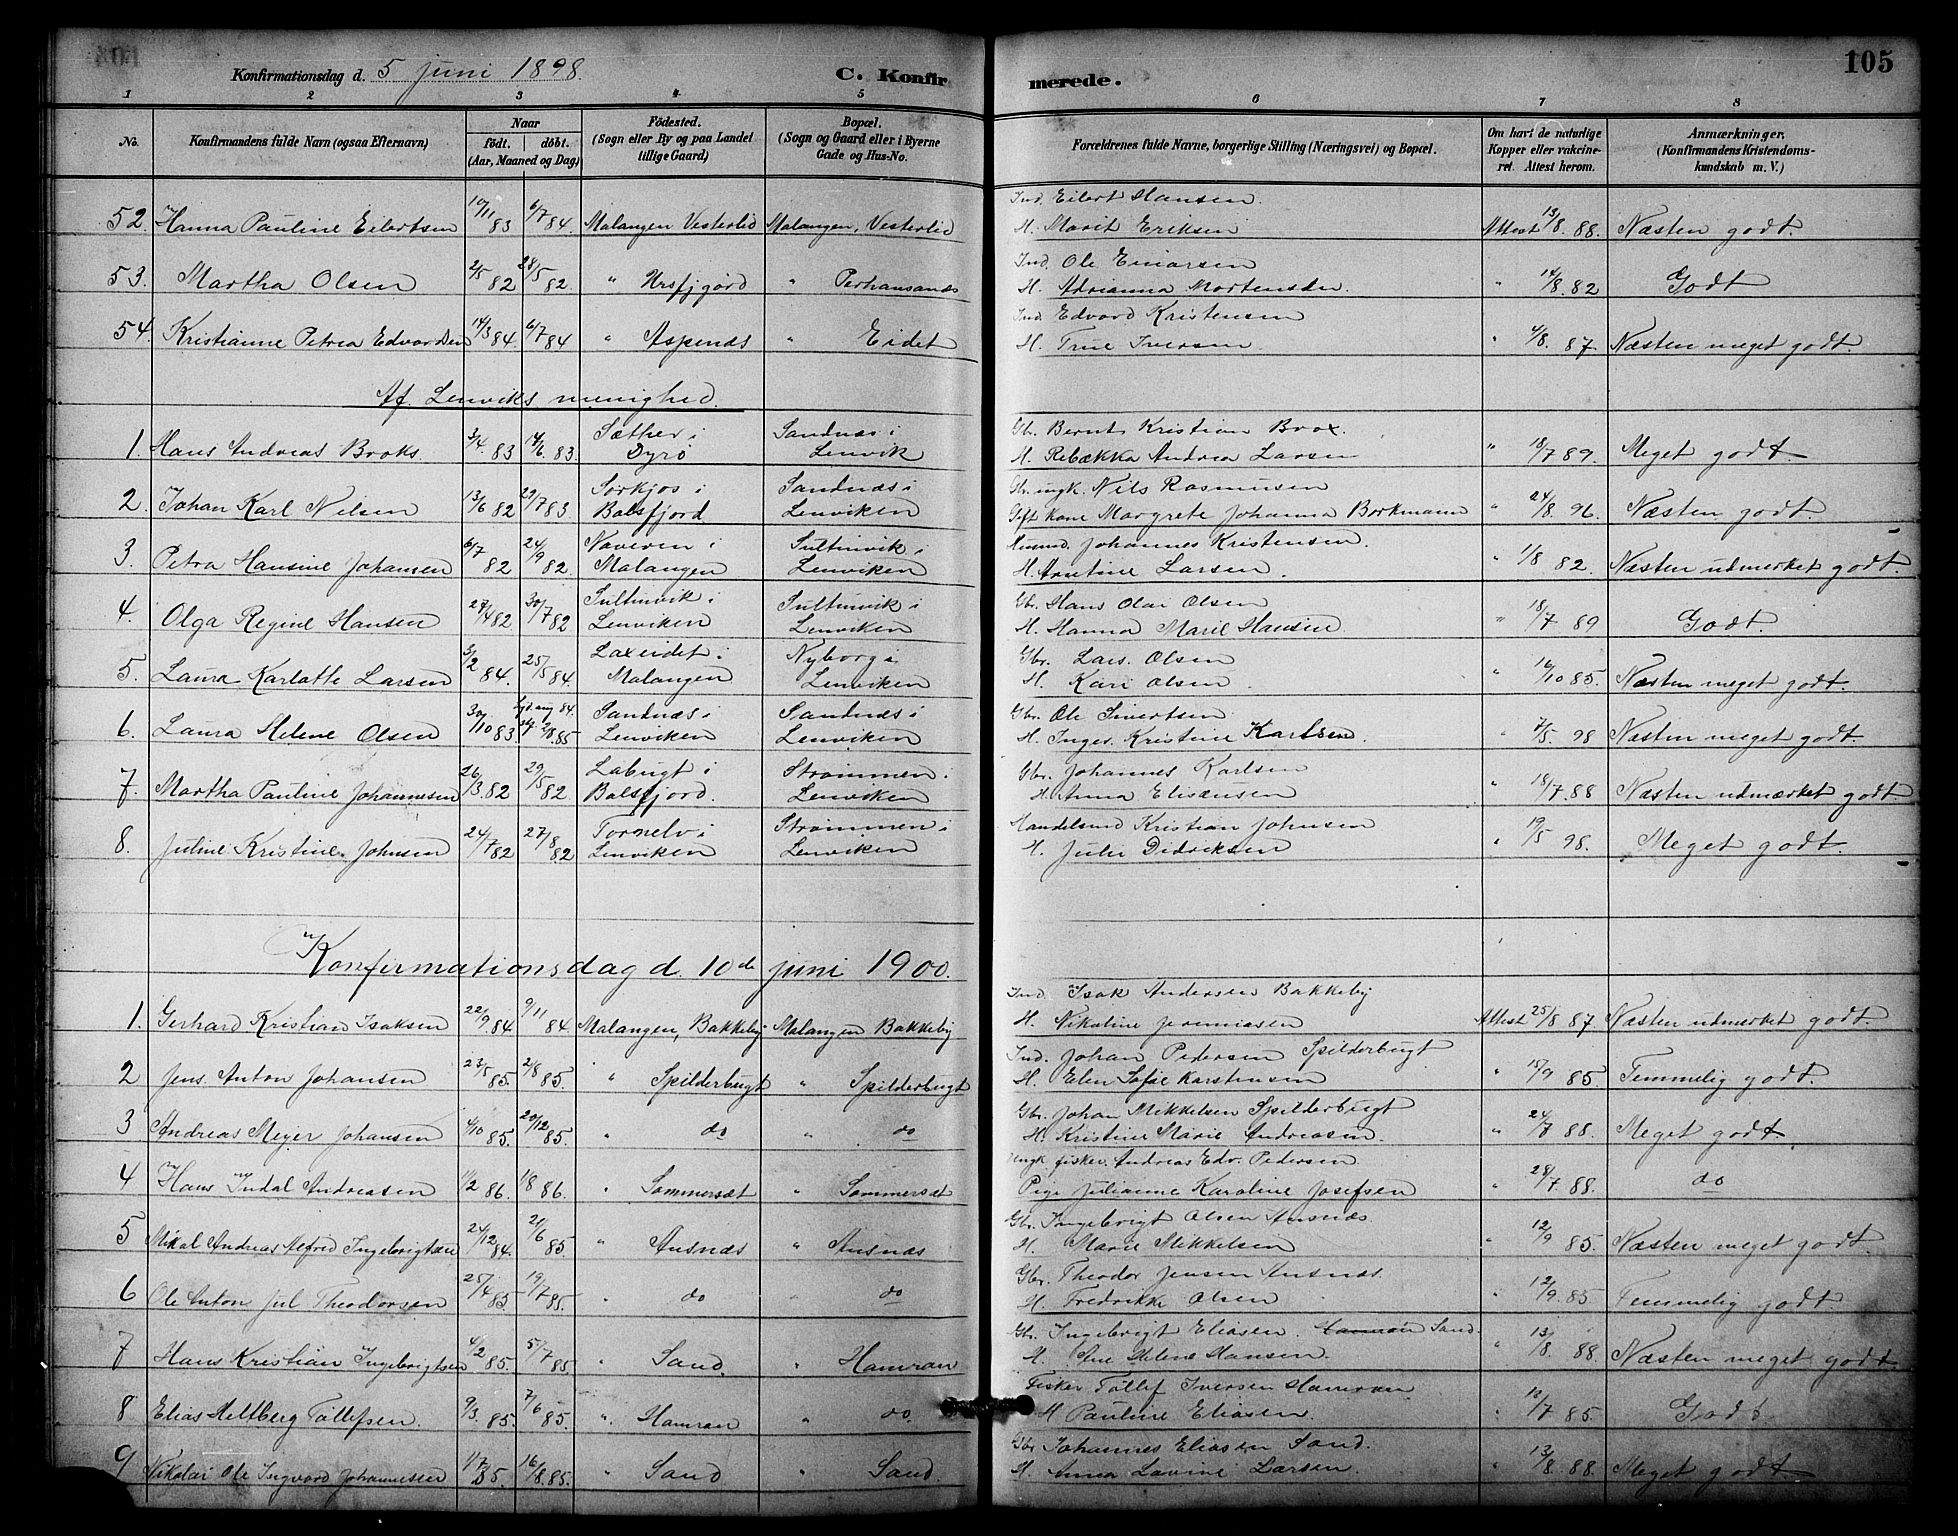 Konfirmationsdag d. 5 Juni 1898. C. Konfirmerede. 105
1 2 3 4 5 6 7 8
No. Konfirmandens fulde Navn (ogsaa Efternavn) Naar født. døbt. (Aar, Maaned og Dag) Fødested. (Sogn eller By og paa Landet tillige Gaard) Bopæl. (Sogn og Gaard eller i Byerne Gade og Hus-No. Forældrenes fulde Navne, borgerlige Stilling (Næringsvei) og Bopæl. Om havt de naturlige Kopper eller vakcineret. Attest herom. Anmærkninger. (Konfirmandens Kristendomskundskab m. V.)
52. Hanna Pauline Eilertsen 10/11 83 6/7 84. Malangen Vesterlid Malangen, Vesterlid Ind. Eilert Hansen H. Marit Eriksen Attest 13/8. 88. Næsten godt.
53. Martha Olsen 2/5 82 28/5 82. " " Perhansanæs Ind. Ole Einarsen H. Adrianna Mortensen. " 14/8. 82 Godt
54. Kristianne Petrea Edvardsen 14/3 84. 6/7 84 " Aspenæs " Eidet Ind Edvard Kristensen H. Trine Iversen. " 4/8. 87. Næsten meget godt.
Af Lenviks menighed.
1. Hans Andreas Broks. 3/4. 83 14/6. 83. Sæther i Dyrø Sandnæs i Lenvik Gbr. Bernt Kristian Brox. H. Rebækka Andrea Larsen " 18/7 89. Meget godt.
2. Johan Karl Nilsen 13/6 82 29/7 83 Sørkjos i Balsfjord Sandnæs i Lenviken Gbr. ungk. Nils Rasmusen Gift Kone Margrete Johanna Borkmann " 24/8. 96. Næsten godt.
3. Petra Hansine Johansen 6/7 82 24/9 82. Naveren i Malangen Sultinvik i Lenviken Husmd. Johannes Kristensen. H. Arntine Larsen. " 11/8 82. Næsten udmerket godt.
4. Olga Regine Hansen 27/4 82 30/7 82 Sultinvik i Lenviken Sultinvik i Lenviken Gbr. Hans Olai Olsen H. Hanna Marie Hansen. " 18/7 89 Godt.
5. Laura Karlotte Larsen 3/2 84. 25/5 84. Laxeidet i Malangen Nyborg i Lenviken Gbr. Lars. Olsen H. Kari Olsen " 16/10 85. Næsten meget godt.
6. Laura Helene Olsen 30/10 83. 2/8. 85 Sandnæs i Lenviken Sandnæs i Lenviken Gbr. Ole Sivertsen H. Inges. Kristine Karlsen. " 7/5. 98 Næsten meget godt.
7. Martha Pauline Johannesen 26/3. 82 29/5 82 Labugt i Balsfjord. Strømmen i Lenviken Gbr. Johannes Karlsen H. Anna Elisæusen " 18/7. 88 Næsten udmærket godt.
8. Juline Kristine Johnsen 24/7 82 27/8 82 Tornelv i Lenviken Strømmen i Lenviken Handelsmd Kristian Johnsen H. Julie Didriksen " 19/5 98. Meget godt.
Konfirmationsdag d. 10de juni 1900.
1. Gerhard Kristian Isaksen 22/9 84 9/11 84. Malangen, Bakkeby Malangen Bakkeby Ind. Isak Andersen Bakkeby H. Nikoline Jeremiasen Attest 25/8 87 Næsten udmærket godt.
2 Jens. Anton Johansen 23/5 85. 2/8 85. " Spilderbugt " Spilderbugt Ind. Johan Pedersen Spilderbugt H. Elen Sofie Karstensen " 15/9 85. Temmelig godt.
3 Andreas Meyer Johansen 4/10 85. 20/12 85. " do " do Gbr. Johan Mikkelsen Spilderbugt H. Kristine Marie Andreasen. " 24/7 88. Meget godt.
4 Hans Indal Andreasen 11/2 86. 1/8 86. " Sommersæt " Sommersæt Ungk. fisker. Andreas Edv. Pedersen Pige Julianne Karoline Josefsen " 28/7. 88. do
5 Mikal Andreas Alfred Ingebrigtsen 24/12 84. 21/6 85. " Ansnæs " Ansnæs Gbr. Ingebrigt Olsen Ansnæs H. Marie Mikkelsen " 12/9 85. Næsten meget godt.
6 Ole Anton Jul Theodorsen 25/4 85 19/7 85. " do " do Gbr. Theodor Jensen Ansnæs. H. Fredrikke Olsen " 12/9. 85. Temmelig godt
7 Hans Kristian Ingebrigtsen 4/2 85. 5/7 85. " Sand. " Hamran Gbr. Ingebrigt Eliasen. Hamran Sand. H. Ane Helene Hansen " 13/8 88. Næsten meget godt.
8 Elias Heltberg Tollefsen. 9/3. 85. 7/6 85. " Hamran " do. Fisker Tollef Iversen Hamran H Pauline Eliasen. " 10/7 85. Godt
9 Nikolai Ole Ingvard Johannessen 1/7 85. 16/8. 85. " Sand " Sand. Gbr Johannes Eliasen Sand. H. Anna Lavine Larsen. " 13/8. 88. Meget godt.